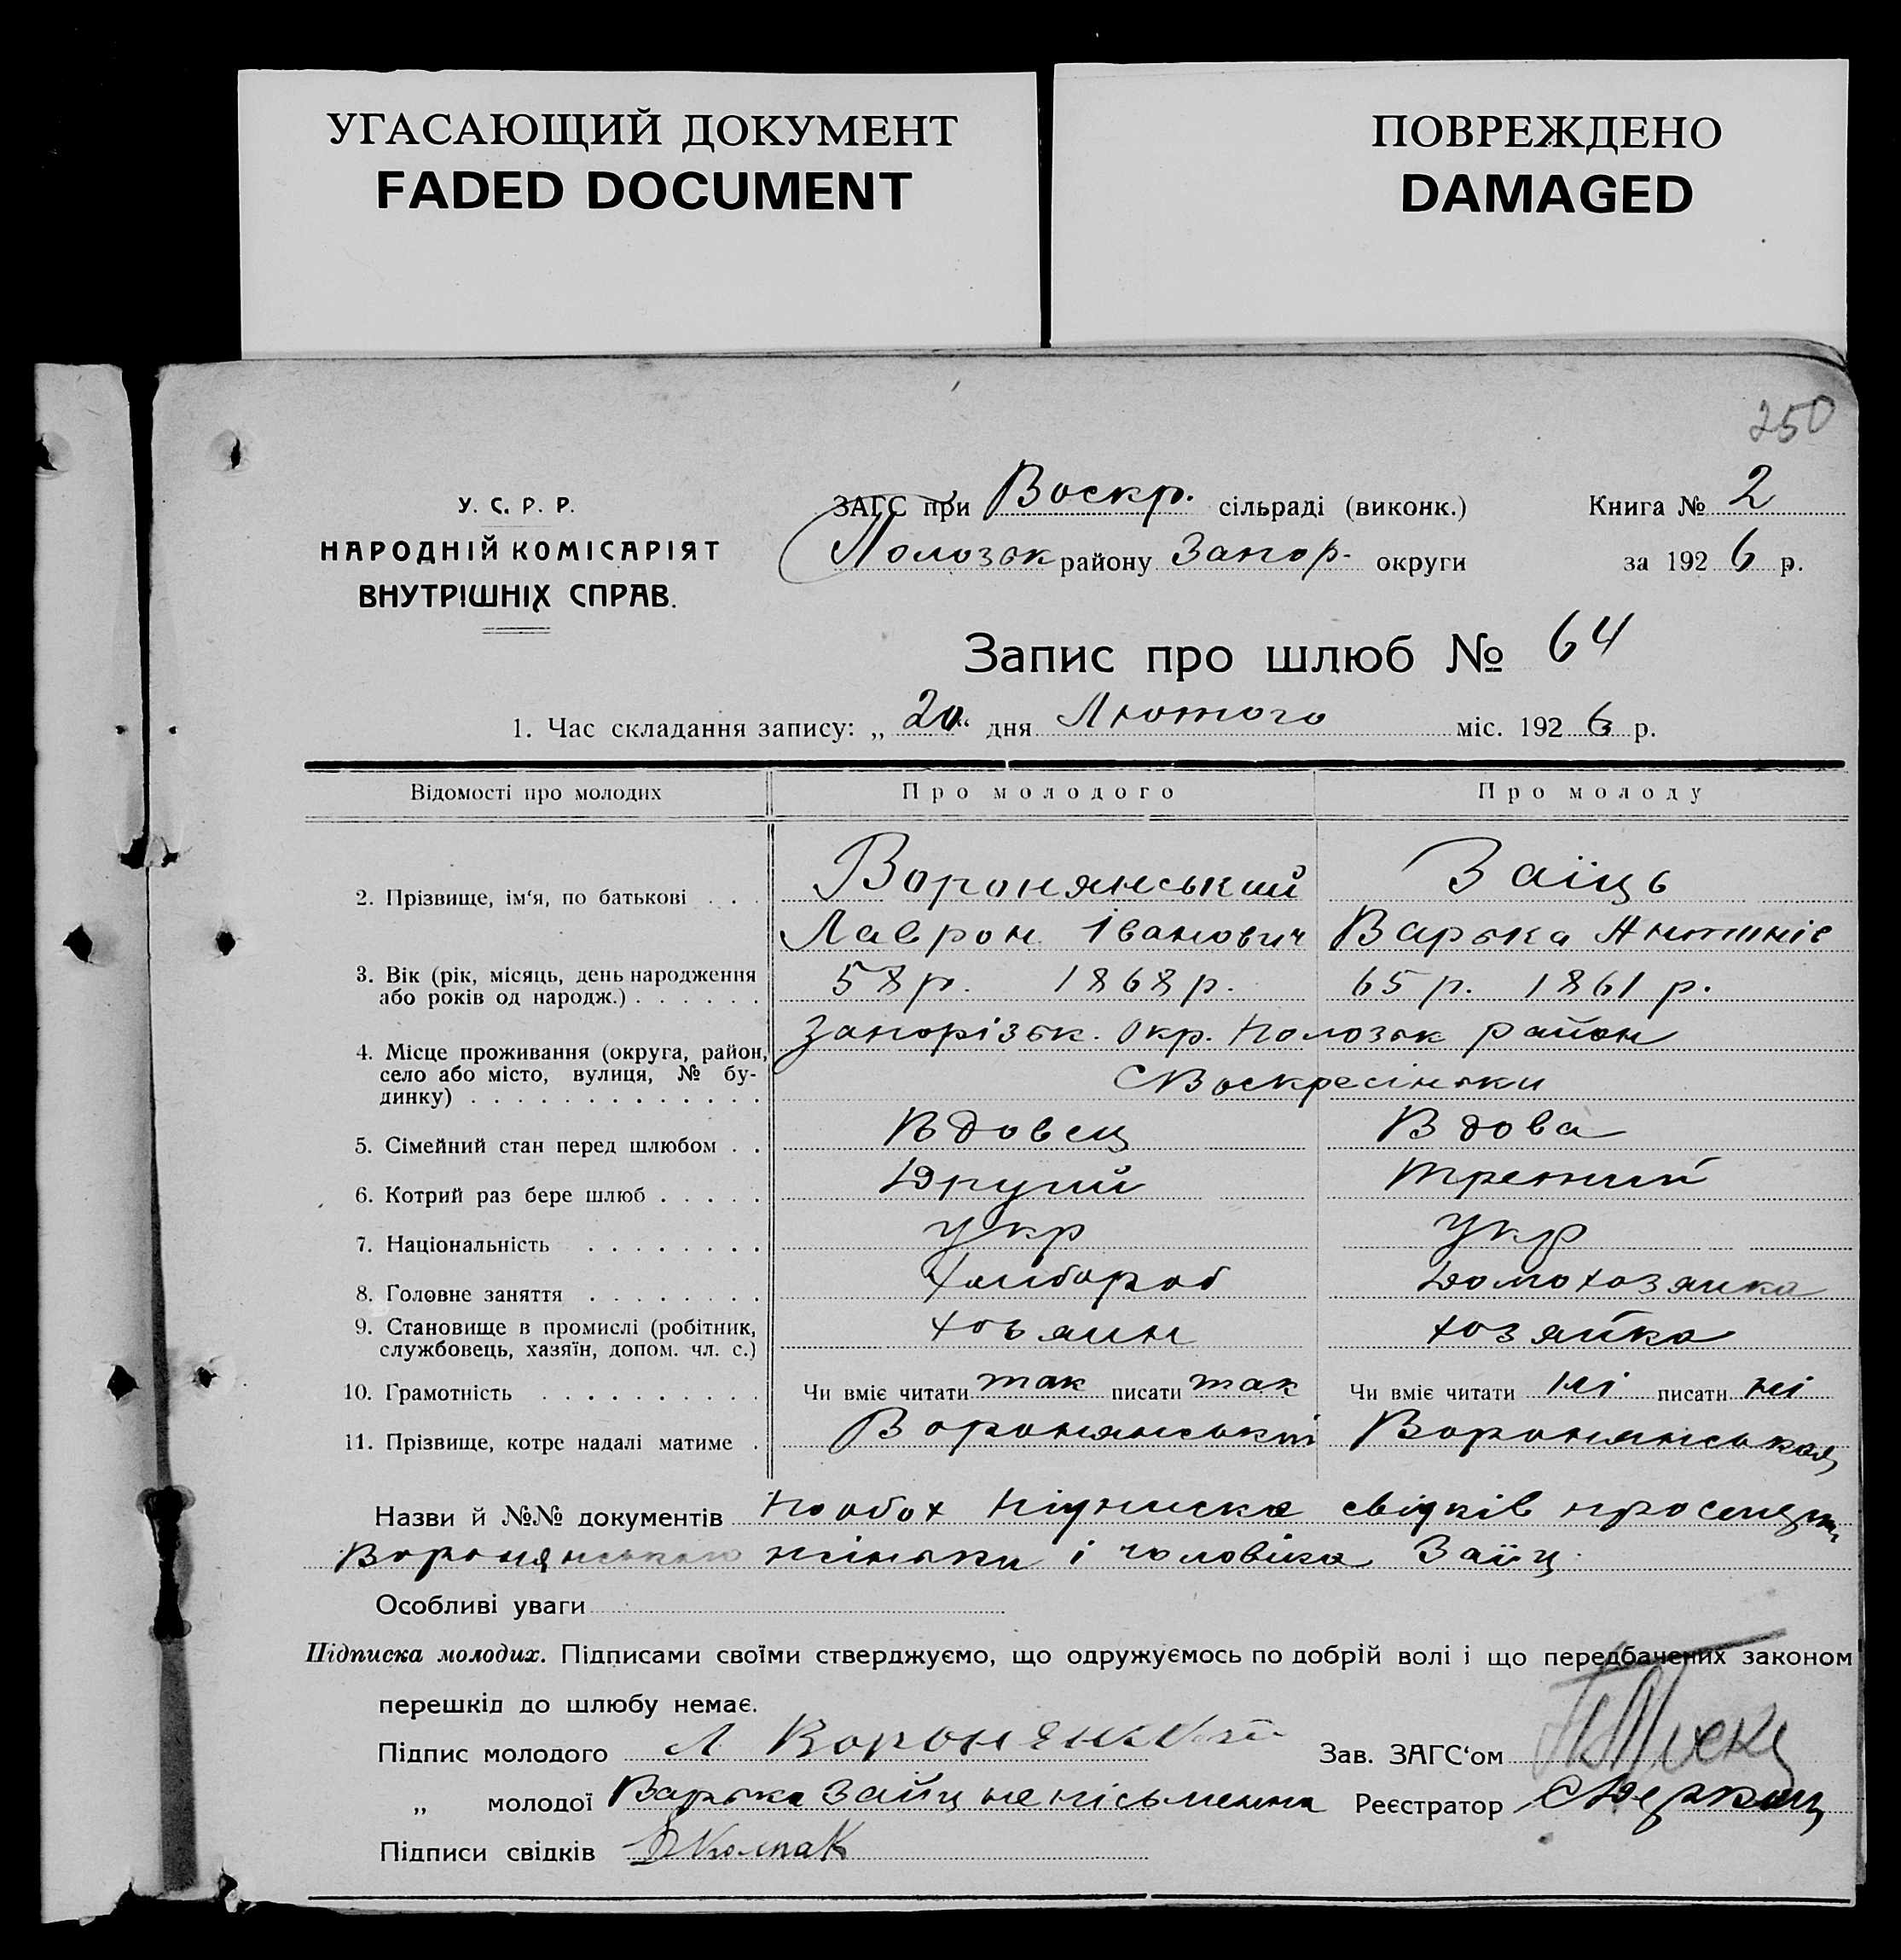 УГАСАЮЩИЙ ДОКУМЕНТ
FADED DOCUMENT
ПОВРЕЖДЕНО
DAMAGED
250
У. С. Р. Р.
НАРОДНІЙ КОМІСАРІЯТ
ВНУТРІШНІХ СПРАВ.
ЗАГС при Воскр. сільраді (виконк.) Книга № 2
Полозьк району Запор. округи за 1926 р.
Запис про шлюб № 64
1. Час складання запису: „20“ дня Лютого міс. 1926 р.
Відомості про молодих Про молодого Про молоду
2. Прізвище, ім‘я, по батькові . . . Воронянський Заїць
Лаврон Іванович Варька Антинів
3. Вік (рік, місяць, день народження або років од народж.) . . . . . . 58 р. 1868 р. 65 р. 1861 р.
4. Місце проживання (округа, район, село або місто, вулиця, № будинку) . . . . . . . . . . . . . Запорізьк. Окр. Полозьк район
С Воскресіньки
5. Сімейний стан перед шлюбом . . Вдовец Вдова
6. Котрий раз бере шлюб . . . . . Другий Третий
7. Національність . . . . . . . . Укр Укр
8. Головне заняття . . . . . . . . Хлибороб Домохозяйка
9. Становище в промислі (робітник, службовець, хазяїн, допом. чл. с.) хозяин хозяйка
10. Грамотність . . . . . . . . . . Чи вміє читати так писати так Чи вміє читати ні писати ні
11. Прізвище, котре надалі матиме . Воронянський Воронянськая
Назви й №№ документів по обох підписка свідків про смерть
Воронянського жіньки і чоловіка Заїц.
Особливі уваги
Підписка молодих. Підписами своїми стверджуємо, що одружуємось по добрій волі і що передбачених законом
перешкід до шлюбу немає.
Підпис молодого Л Воронянский Зав. ЗАГС‘ом
„ молодої Варька Зайц не пісьменна Реєстратор
Підписи свідків Колпак